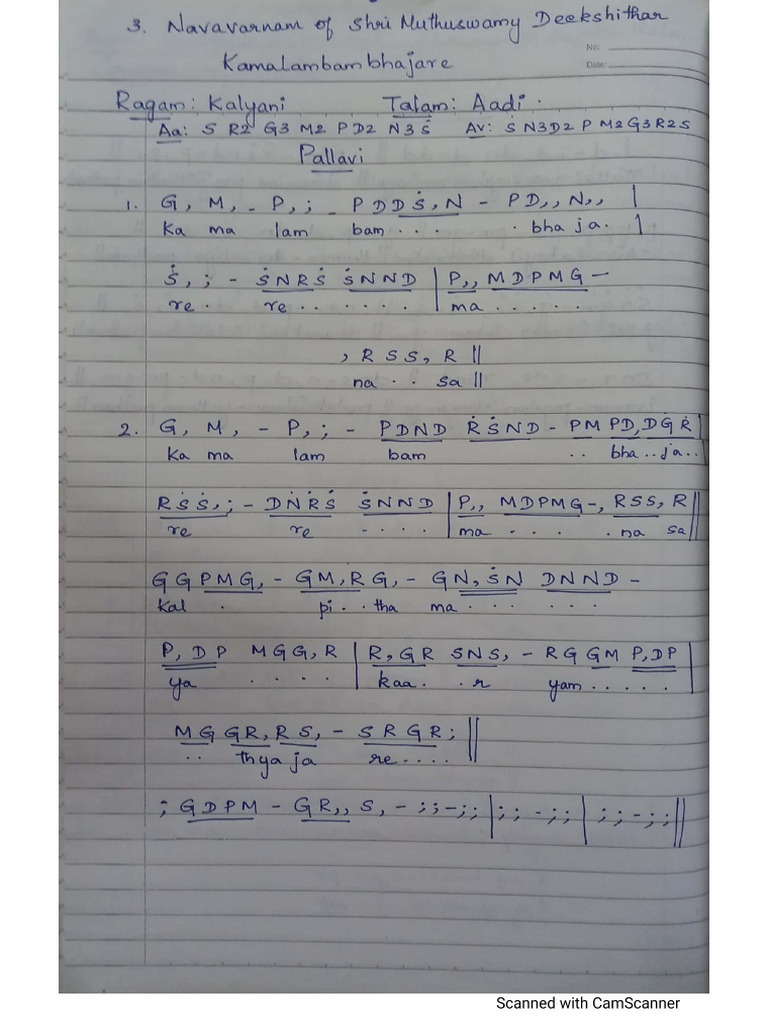 3. Navavarnam of Shri Muthuswamy Deekshithar
No:
Kamalambam bhajare
Date:
Ragam: Kalyani Talam: Aadi.
Aa: S R2 G3 M2 P D2 N3 Ṡ Av: Ṡ N3 D2 P M2 G3 R2 S
Pallavi
1. G, M, - P, ; - P D D Ṡ, N - P D , , N , , |
Ka ma lam bam . . . . bha ja . |
Ṡ, ; - Ṡ N R Ṡ Ṡ N N D | P , , M D P M G -
re . re . . . . . . | ma . . . . .
, R S S, R ||
na . . sa ||
2. G, M, - P, ; - P D N D Ṙ Ṡ N D - P M P D, D Ġ Ṙ |
Ka ma lam bam . . bha . . ja . . |
R Ṡ Ṡ, ; - D Ṅ Ṙ Ṡ Ṡ N N D | P , , M D P M G - , R S S, R ||
re re . . . . | ma . . . . . na sa ||
G G P M G, - G M, R G, - G N, Ṡ N D N N D -
kal . pi . . tha ma . . . . . .
P, D P M G G, R | R, G R S N S, - R G G M P, D P |
ya . . . . | kaa . . r yam . . . . . |
M G G R, R S, - S R G R ; ||
. . thya ja re . . . . ||
; G D P M - G R , , S, - ; ; - ; ; | ; ; - ; ; | ; ; - ; ; ||
Scanned with CamScanner